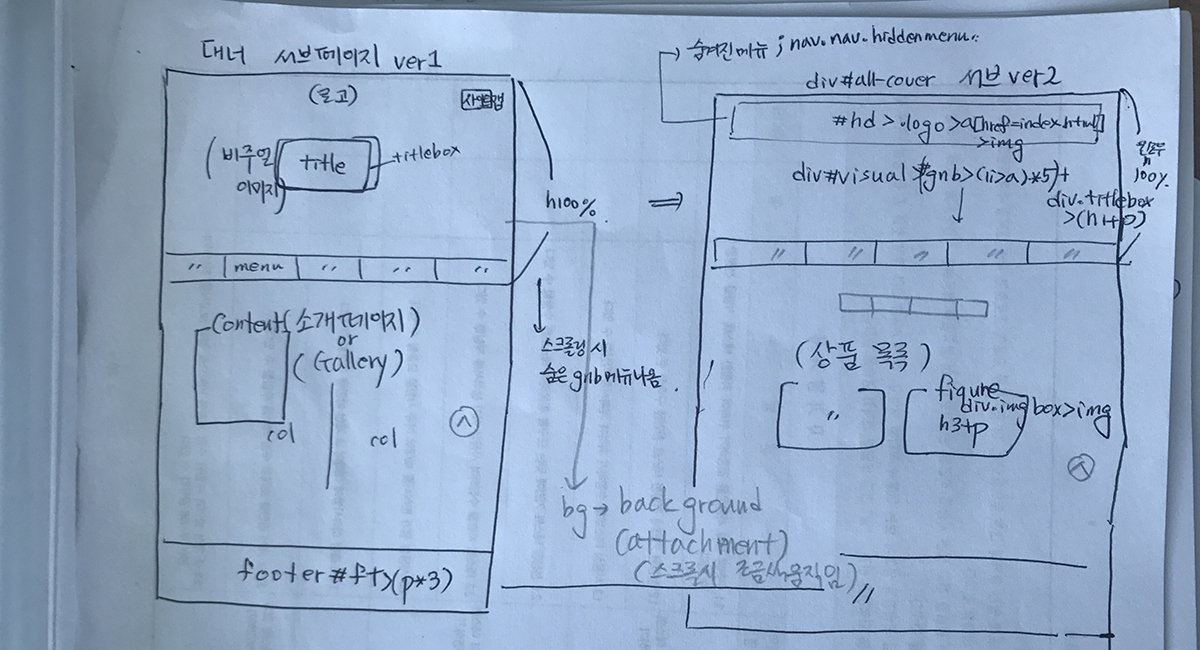 대너 서브페이지 ver1
(로고)
사이트맵
(비주얼
이미지)
title
titlebox
h100%
〃 menu 〃 〃 〃
Content(소개페이지)
or
(Gallery)
col
col
footer#ft>(p*3)
스크롤링 시
숨은 gnb메뉴나옴.
bg → background
(attachment)
(스크롤시 조금씩움직임)
〃
→ 숨겨진메뉴 ; nav.nav.hiddenmenu..
div#all-cover 서브 ver2
#hd>.logo>a[href=index.html]
>img
div#visual>(#gnb>(li>a)*5)+
div.titlebox
>(h1+p)
100%.
〃 〃 〃 〃 〃
(상품 목록)
〃
figure
div.imgbox>img
h3+p